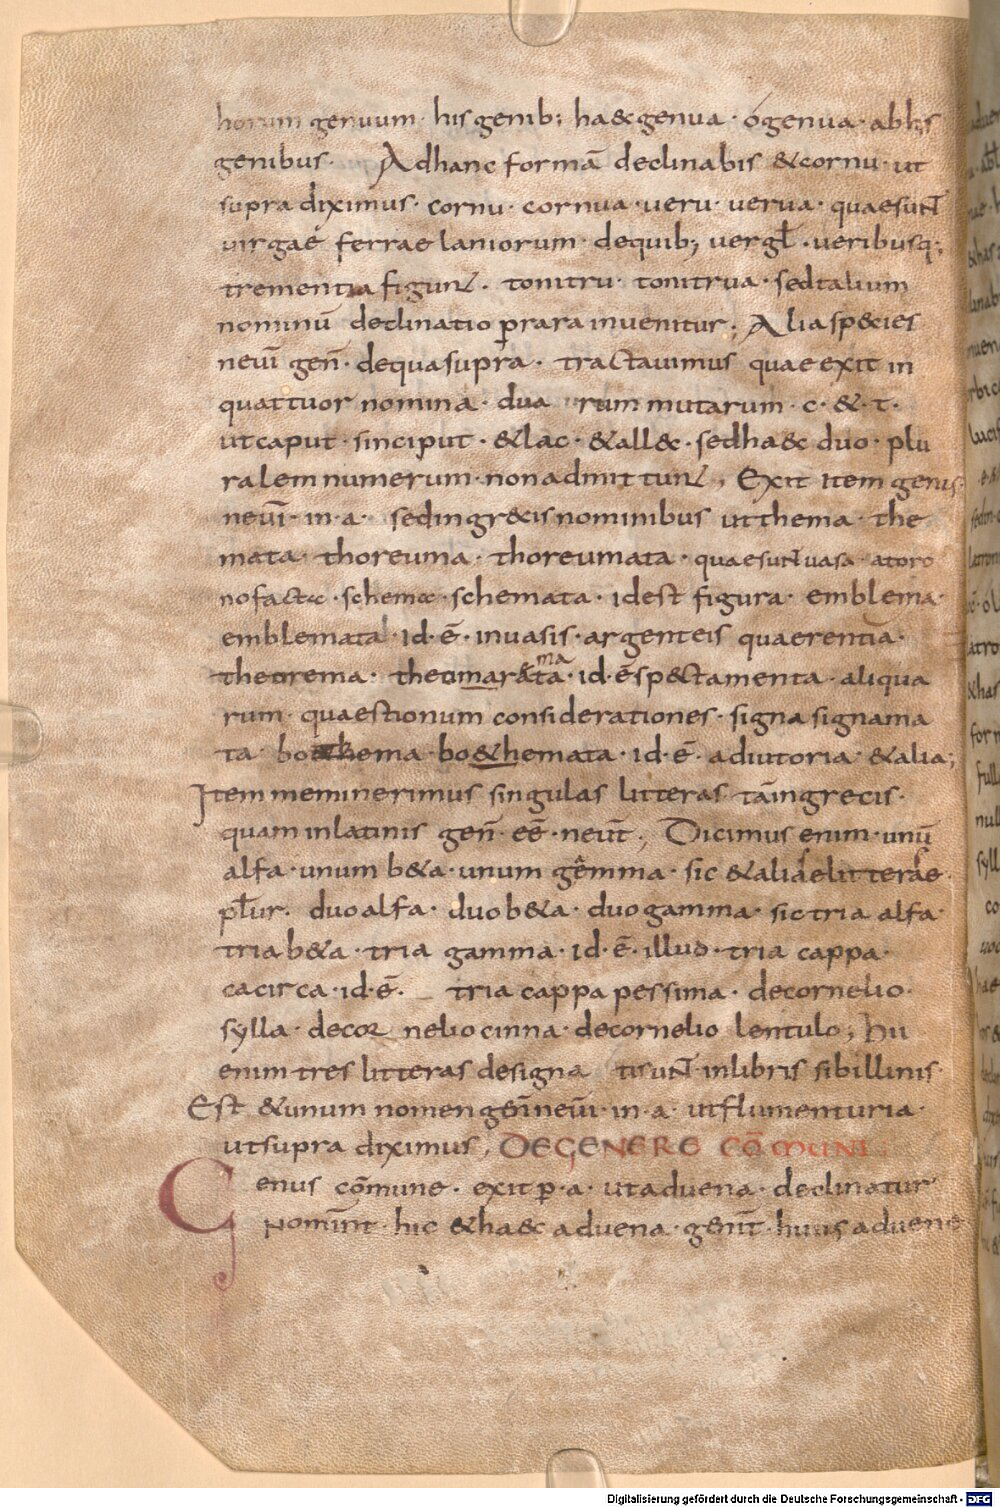 horum genuum · his genib; ha&c genua · ó genua · ab his
genibus · Ad hanc formā declinabis & cornu · ut
supra diximus · cornu · cornua · ueru · uerua · quae suNT
uirgae ferrae laniorum · de quib; uergł · ueribusq;
trementia figunt · tonitru · tonitrua · sed talium
nominū declinatio p rara inuenitur; Alia species
neuī geñ · de qua supra · tractauimus quae exit in
quattuor nomina · dua rum mutarum · c · & · t ·
ut caput · sinciput · & lac · & all&c · sed ha&c duo · plu
ralem numerum · non admittunt; Exit item genis
neuī · in · a · sed in gr&cis nominibus ut thema · the
mata · thoreuma · thoreumata · quae suNT uasa · a toro
no facta · schema · schemata · id est figura · emblema ·
emblemata · id · ē · in uasis · argenteis quaerentia ·
theorema · theoimarema ta · id · ē sp&ctamenta · aliqua
rum · quaestionum considerationes · signa signama
ta · bo&hema · bo&hemata · id · ē · adiutoria · & alia;
Item meminerimus singulas litteras tā in grecis ·
quam in latinis geñ · eē · neut̄; Dicimus enim · unū
alfa · unum b&a · unum gēmma · sic & alias elitteras ·
płur · duo alfa · duo b&a · duo gamma · sic tria alfa ·
tria b&a · tria gamma · id · ē · illud · tria cappa ·
cacirca · id · ē · tria cappa pessima · de cornelio ·
sylla · de cor nelio cinna · de cornelio lentulo; hii
enim tres litteras designa ti suNT · in libris sibillinis ·
Est & unum nomen geñi neuī · in · a · ut flumen turia ·
ut supra diximus; DE GENERE CŌMUNI
Genus cōmune · exit p · a · ut aduena · declinatur
Nomint̄ · hic & ha&c aduena · genit̄ · huius aduene